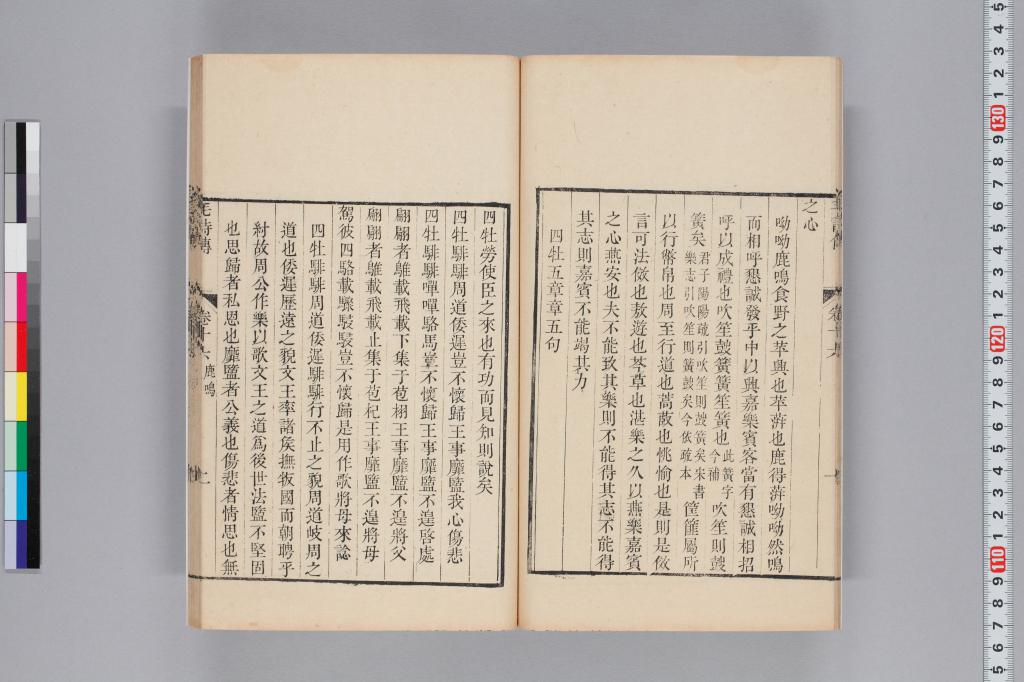 之心
呦呦鹿鳴食野之苹興也苹蓱也鹿得蓱呦呦然鳴
而相呼懇誠發乎中以興嘉樂賓客當有懇誠相招
呼以成禮也吹笙鼓簧簧笙簧也此簧字今補吹笙則鼓
簧矣君子陽陽疏引吹笙則鼓簧矣宋書樂志引吹笙則簧鼓矣今依疏本筐篚屬所
以行幣帛也周至行道也蒿菣也恌愉也是則是傚
言可法傚也敖遊也芩草也湛樂之久以燕樂嘉賓
之心燕安也夫不能致其樂則不能得其志不能得
其志則嘉賓不能竭其力
四牡五章章五句
四牡勞使臣之來也有功而見知則說矣
四牡騑騑周道倭遲豈不懷歸王事靡盬我心傷悲
四牡騑騑嘽嘽駱馬豈不懷歸王事靡盬不遑啓處
翩翩者鵻載飛載下集于苞栩王事靡盬不遑將父
翩翩者鵻載飛載止集于苞杞王事靡盬不遑將母
駕彼四駱載驟駸駸豈不懷歸是用作歌將母來諗
四牡騑騑周道倭遲騑騑行不止之貌周道岐周之
道也倭遲歷遠之貌文王率諸矦撫叛國而朝聘乎
紂故周公作樂以歌文王之道爲後世法盬不堅固
也思歸者私恩也靡盬者公義也傷悲者情思也無
毛詩傳
卷十六 鹿鳴